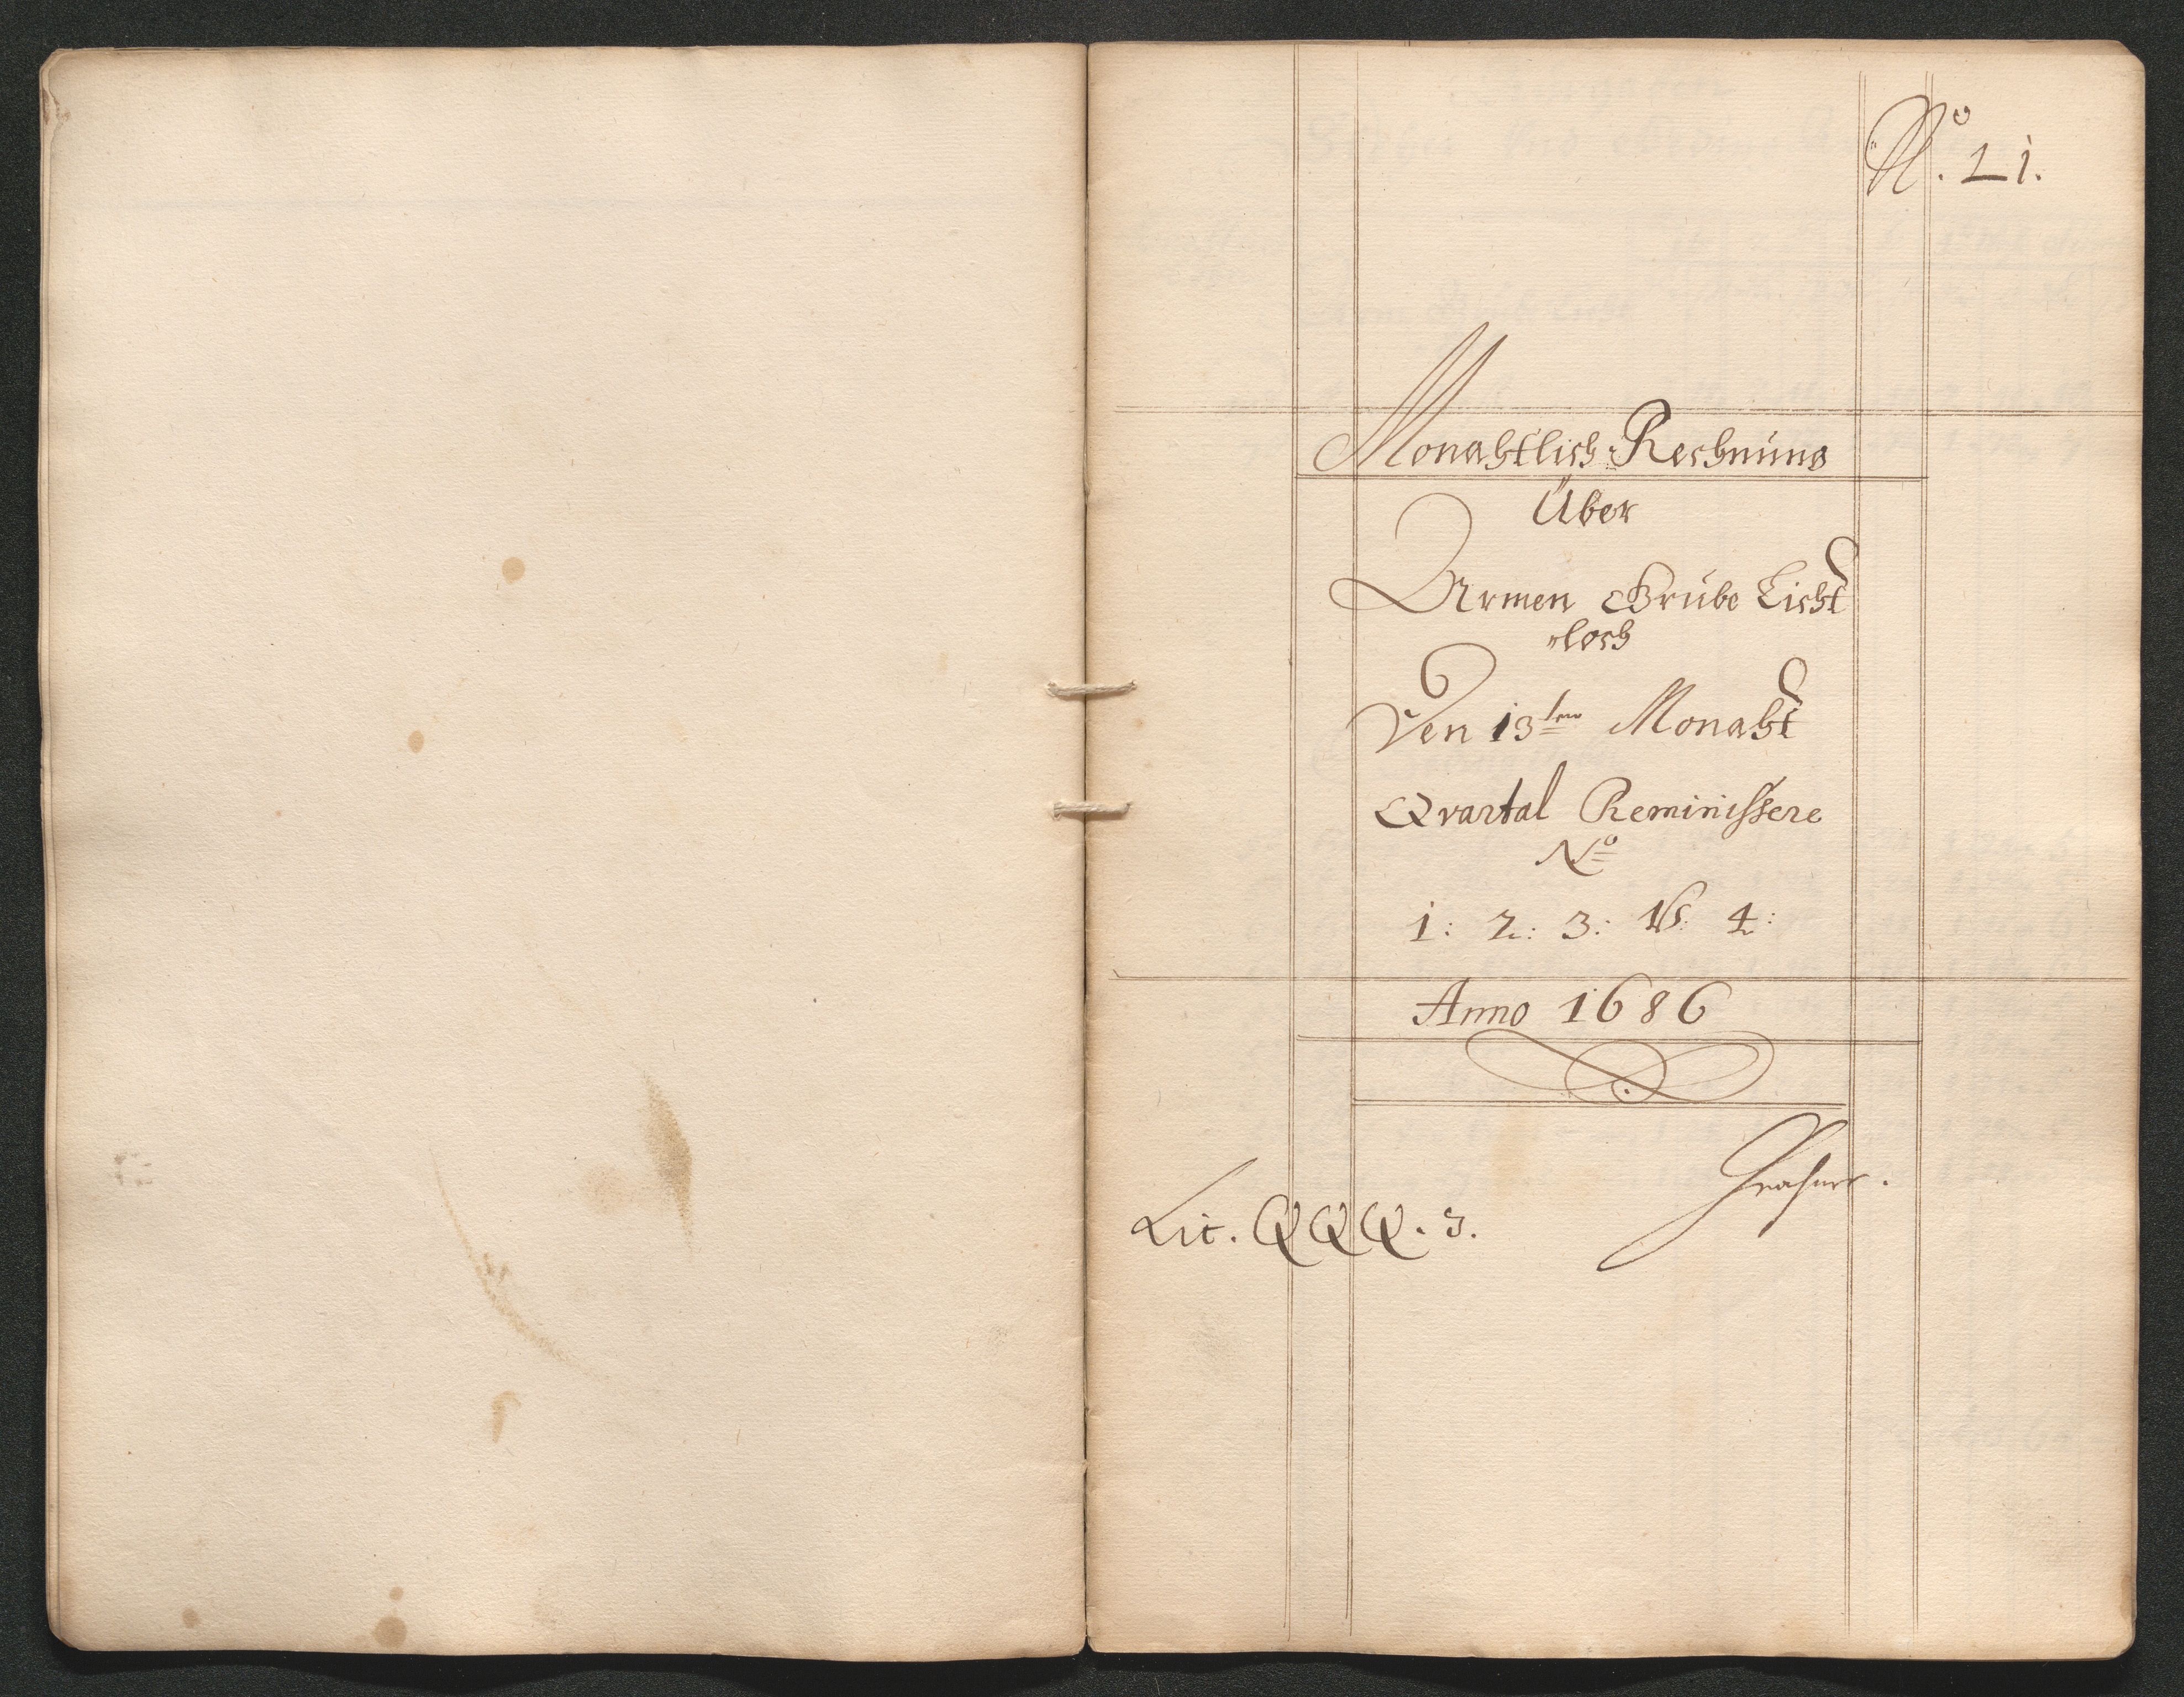 No. 21.
Monahtlich Rechnung
Über
Armen Grube Licht
loch
Den 13ten Monaht
Qvartal Reminissere
No
1: 2: 3: 4:
Anno 1686
Lit. QQQ. 3.